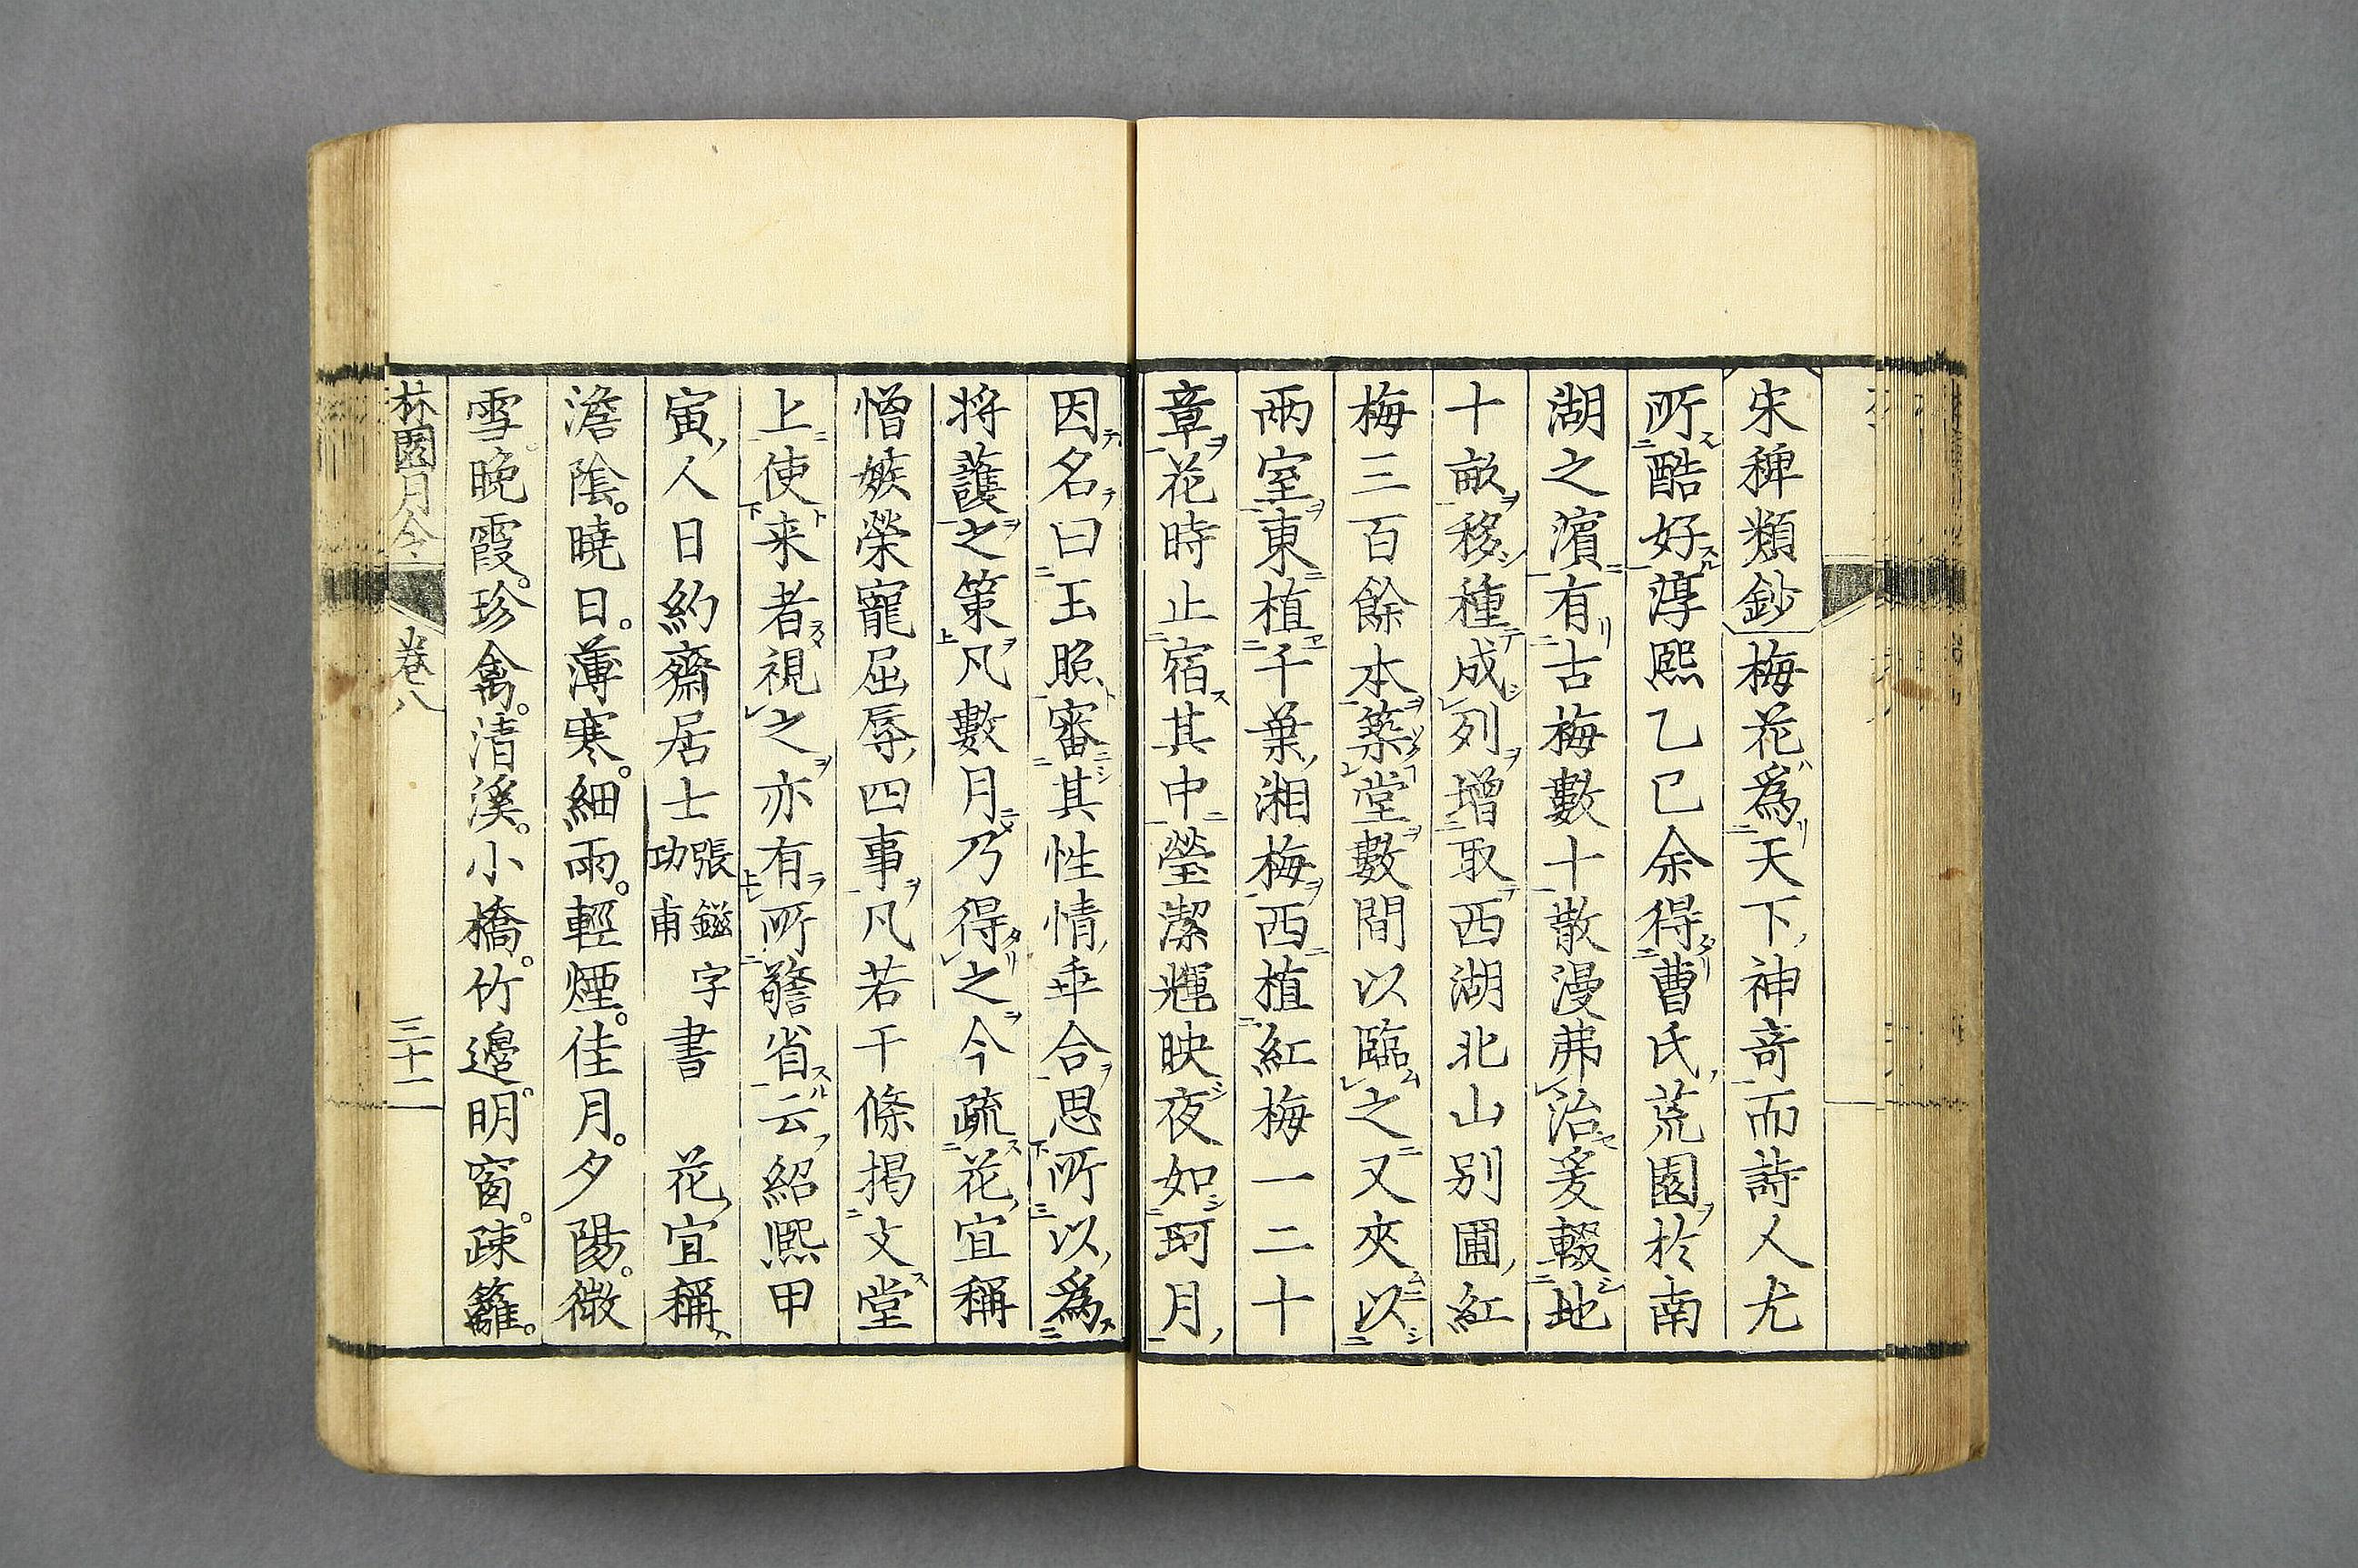 宋稗類鈔梅花爲天下神奇而詩人尤
所酷好淳熙乙巳余得曹氏荒園於南
湖之濵有古梅數十散漫弗治爰輟地
十畝移種成列增取西湖北山别圃紅
梅三百餘本築堂數間以臨之又夾以
兩室東植千葉湘梅西植紅梅一二十
章花時止宿其中瑩潔輝映夜如珂月
因名曰玉照審其性情乖合思所以爲
将䕶之策凡數月乃得之今疏花宜稱
憎嫉榮寵屈辱四事凡若干條揭文堂
上使来者視之亦有所警省云紹熙甲
寅人日約齋居士張鎡字功甫書 花宜稱
澹陰。曉日。薄寒。細雨。輕煙。佳月。夕陽。微
雪。晩霞。珍禽。清溪。小橋。竹邊。明窗。疎籬。
林園月令 卷八 三十二